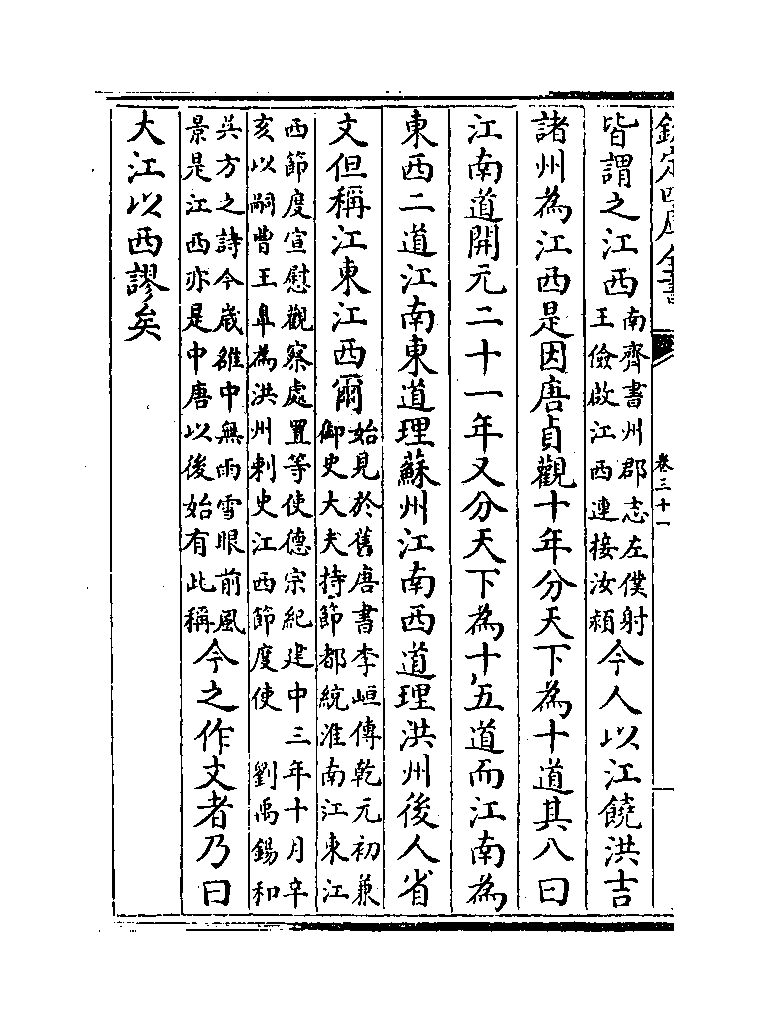 欽定四庫全書
卷三十一
皆謂之江西南齊書州郡志左僕射王儉啟江西連接汝潁今人以江饒洪吉
諸州為江西是因唐貞觀十年分天下為十道其八曰
江南道開元二十一年又分天下為十五道而江南為
東西二道江南東道理蘇州江南西道理洪州後人省
文但稱江東江西爾始見於舊唐書李峘傳乾元初兼御史大夫持節都統淮南江東江
西節度宣慰觀察處置等使德宗紀建中三年十月辛亥以嗣曹王臯為洪州刺史江西節度使　劉禹錫和
吳方之詩今歲雒中無雨雪眼前風景是江西亦是中唐以後始有此稱今之作文者乃曰
大江以西謬矣